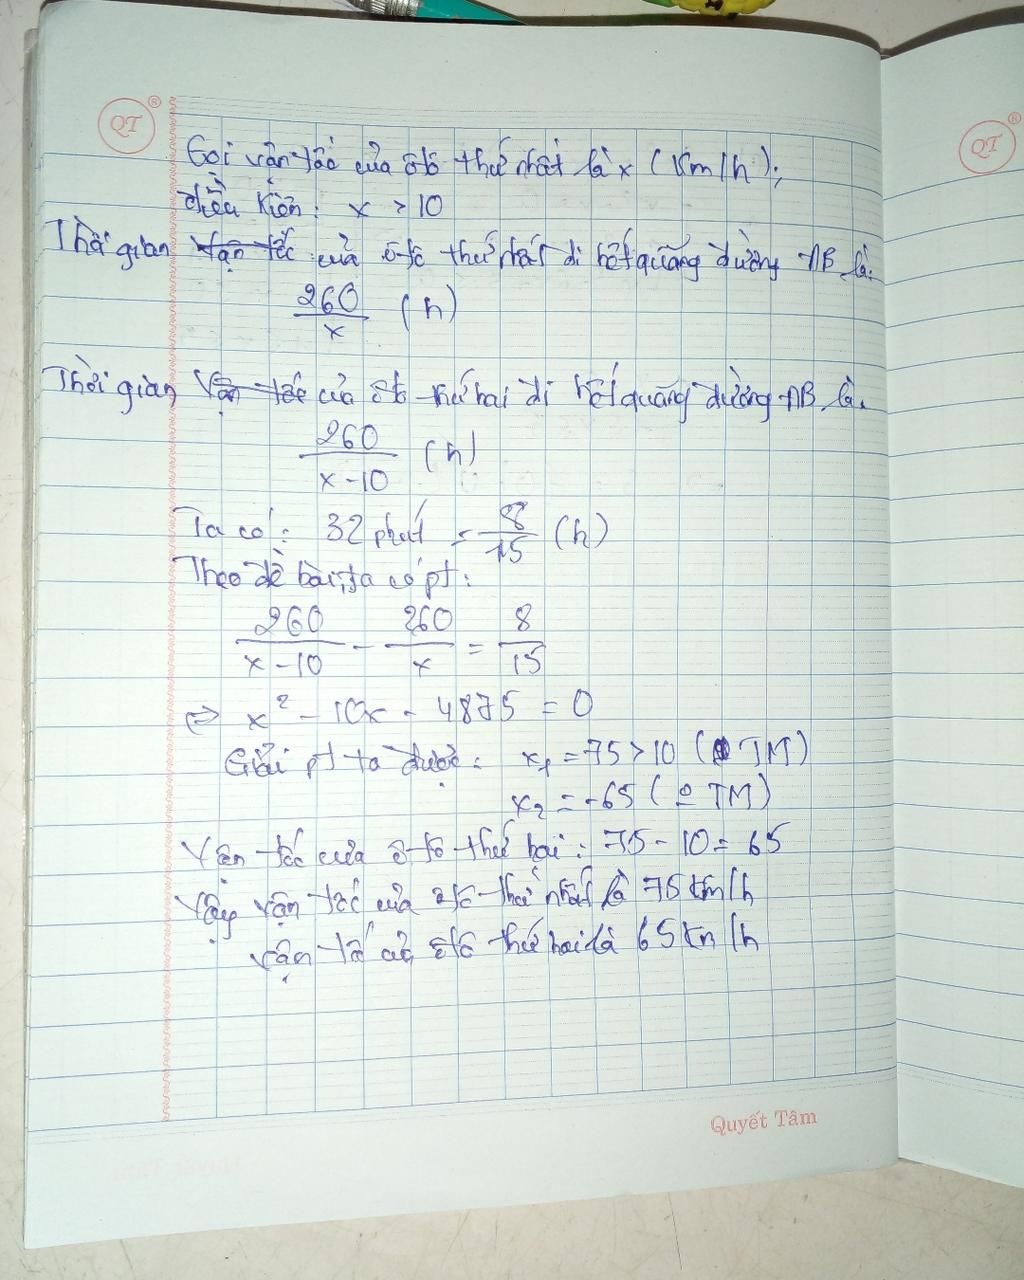 QT ®
QT ®
Gọi vận tốc của ô tô thứ nhất là x (km/h);
điều kiện: x > 10
Thời gian vận tốc của ô tô thứ nhất đi hết quãng đường AB là:
260/x (h)
Thời gian Vận tốc của ô tô thứ hai đi hết quãng đường AB là.
260/(x-10) (h)
Ta có: 32 phút = 8/15 (h)
Theo đề bài, ta có pt:
260/(x-10) - 260/x = 8/15
⇔ x² - 10x - 4875 = 0
Giải pt ta được: x₁ = 75 > 10 (TM)
x₂ = -65 (TM)
Vận tốc của ô tô thứ hai: 75 - 10 = 65
Vậy vận tốc của ô tô thứ nhất là 75 km/h
vận tố củ ô tô thứ hai là 65 km/h
Quyết Tâm